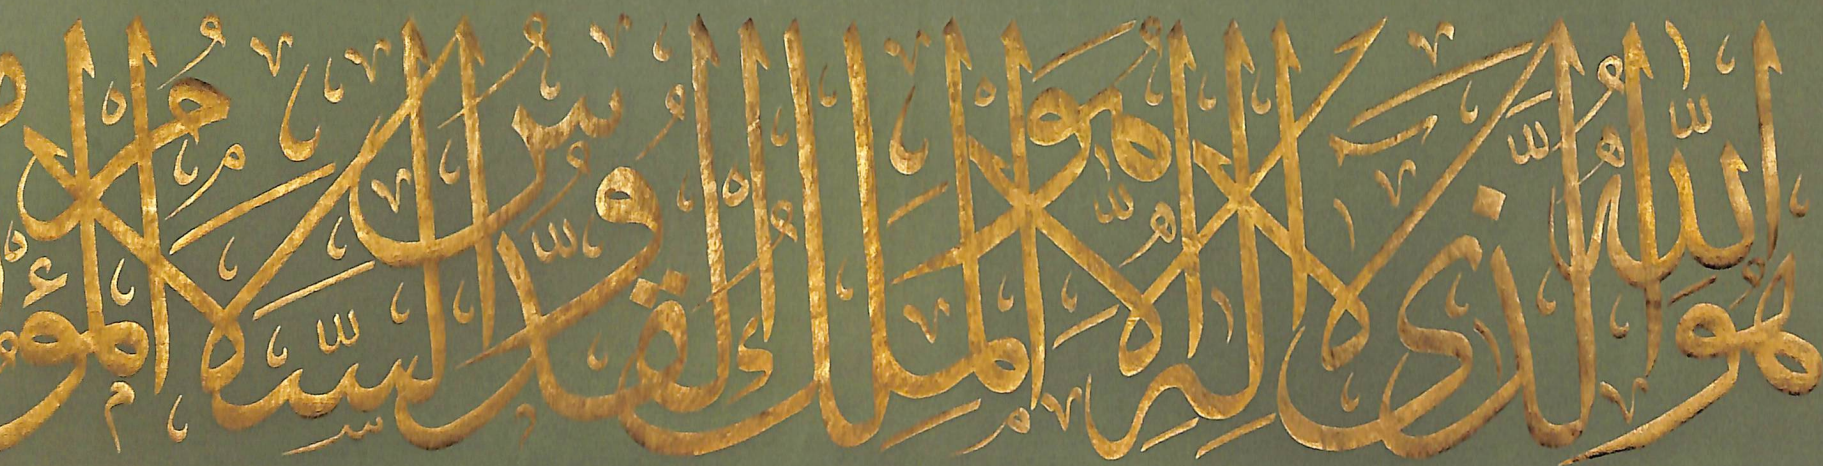 هُوَ اللّٰهُ الَّذِي لَا إِلٰهَ إِلَّا هُوَ الْمَلِكُ الْقُدُّوسُ السَّلَامُ الْمُؤ